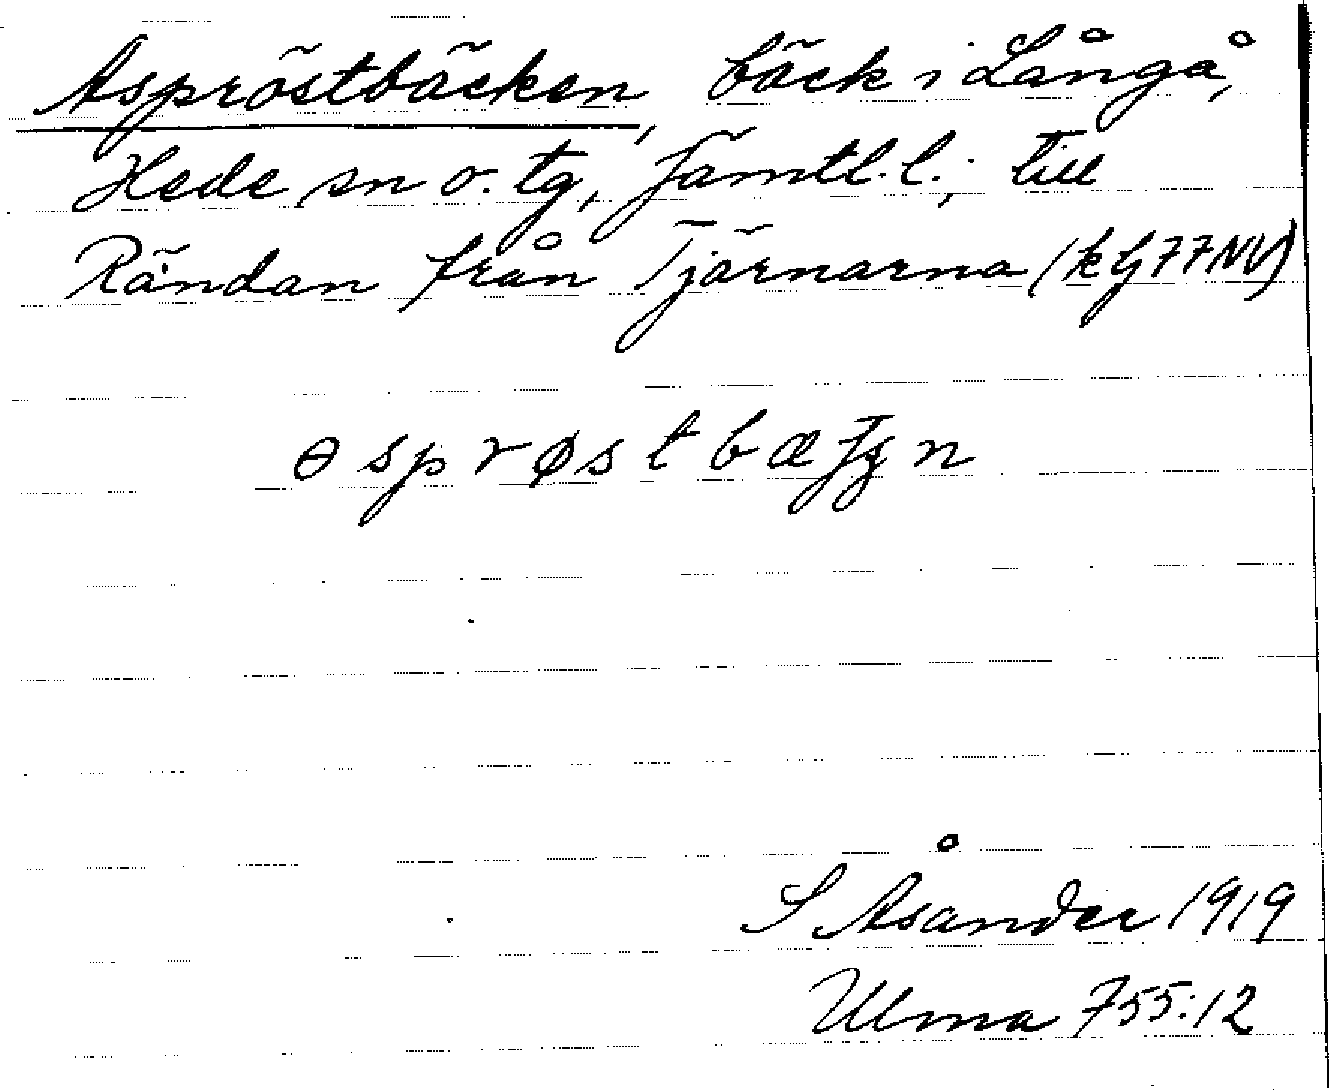 Aspröstbäcken, bäck i Långå,
Hede sn o. tg, Jämtl. l.; till
Rändan från Tjärnarna (kbj 77NV)
S Åsander 1919
Ulma 755:12